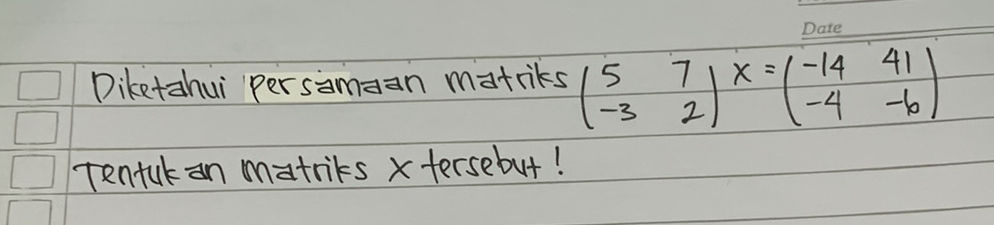 Date
Diketahui persamaan matriks (5 7 / -3 2) x = (-14 41 / -4 -6)
Tentukan matriks x tersebut!